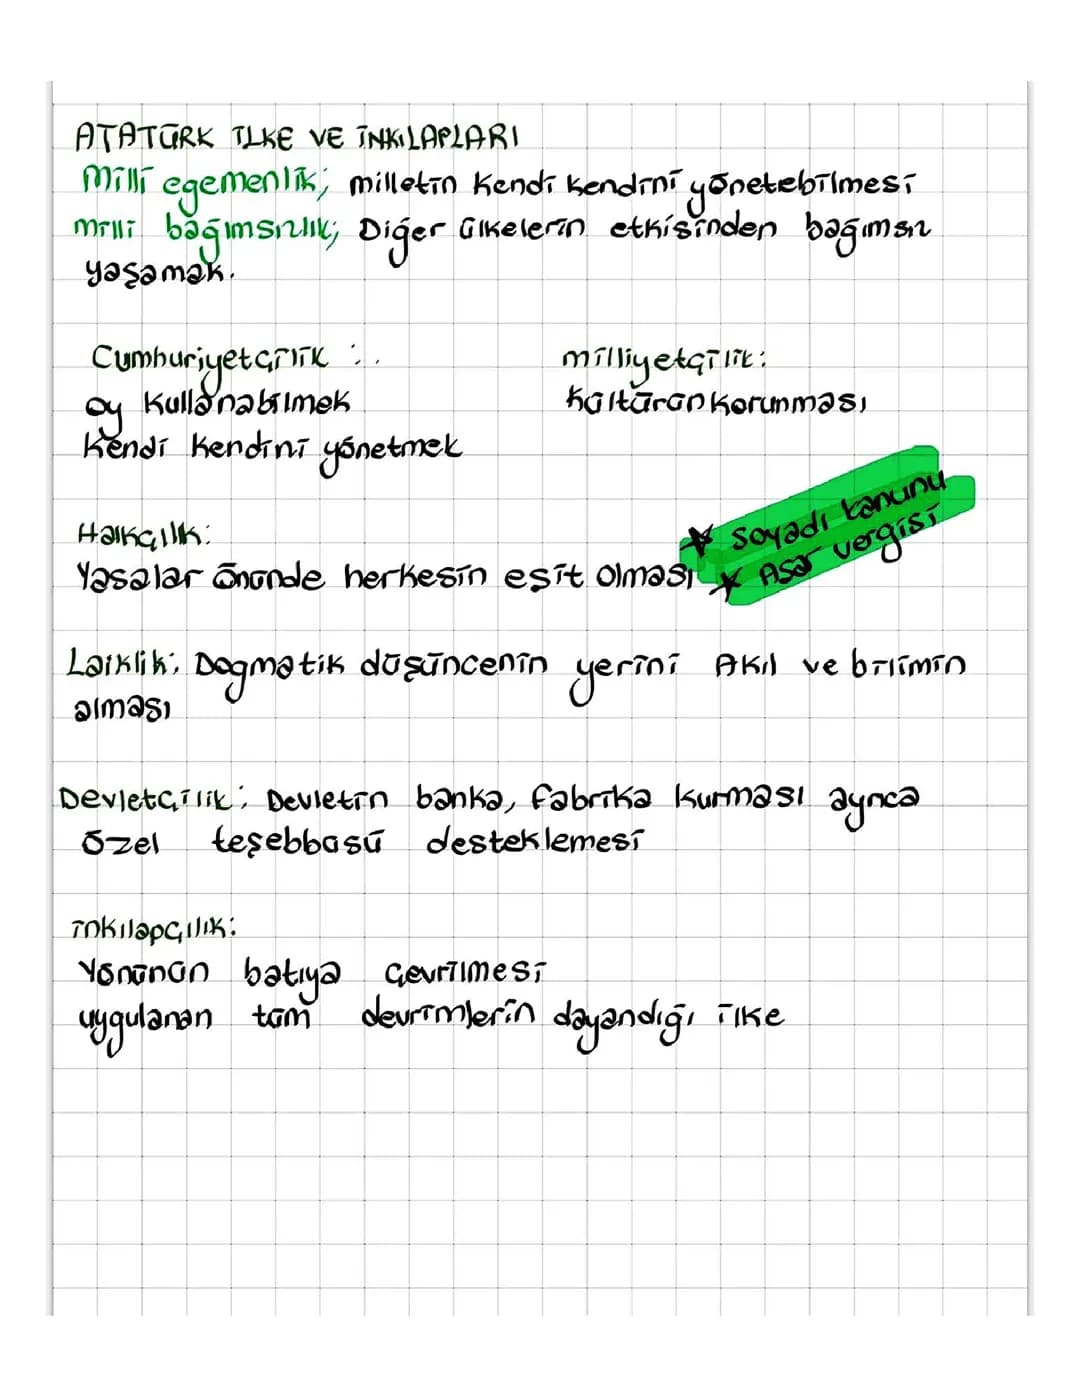 ATATÜRK İLKE VE İNKILAPLARI
Millî egemenlik; milletin kendi kendini yönetebilmesi
Milli bağımsızlık; Diğer ülkelerin etkisinden bağımsız
yaşamak.
Cumhuriyetçilik :.
oy kullanabilmek
kendi kendini yönetmek
milliyetçilik:
kültürün korunması
Halkçılık:
Yasalar önünde herkesin eşit olması
★ Soyadı kanunu
★ Aşar vergisi
Laiklik: Dogmatik düşüncenin yerini Akıl ve bilimin
alması
Devletçilik: Devletin banka, fabrika kurması ayrıca
özel teşebbüsü desteklemesi
inkılapçılık:
Yönünün batıya çevrilmesi
uygulanan tüm devrimlerin dayandığı ilke